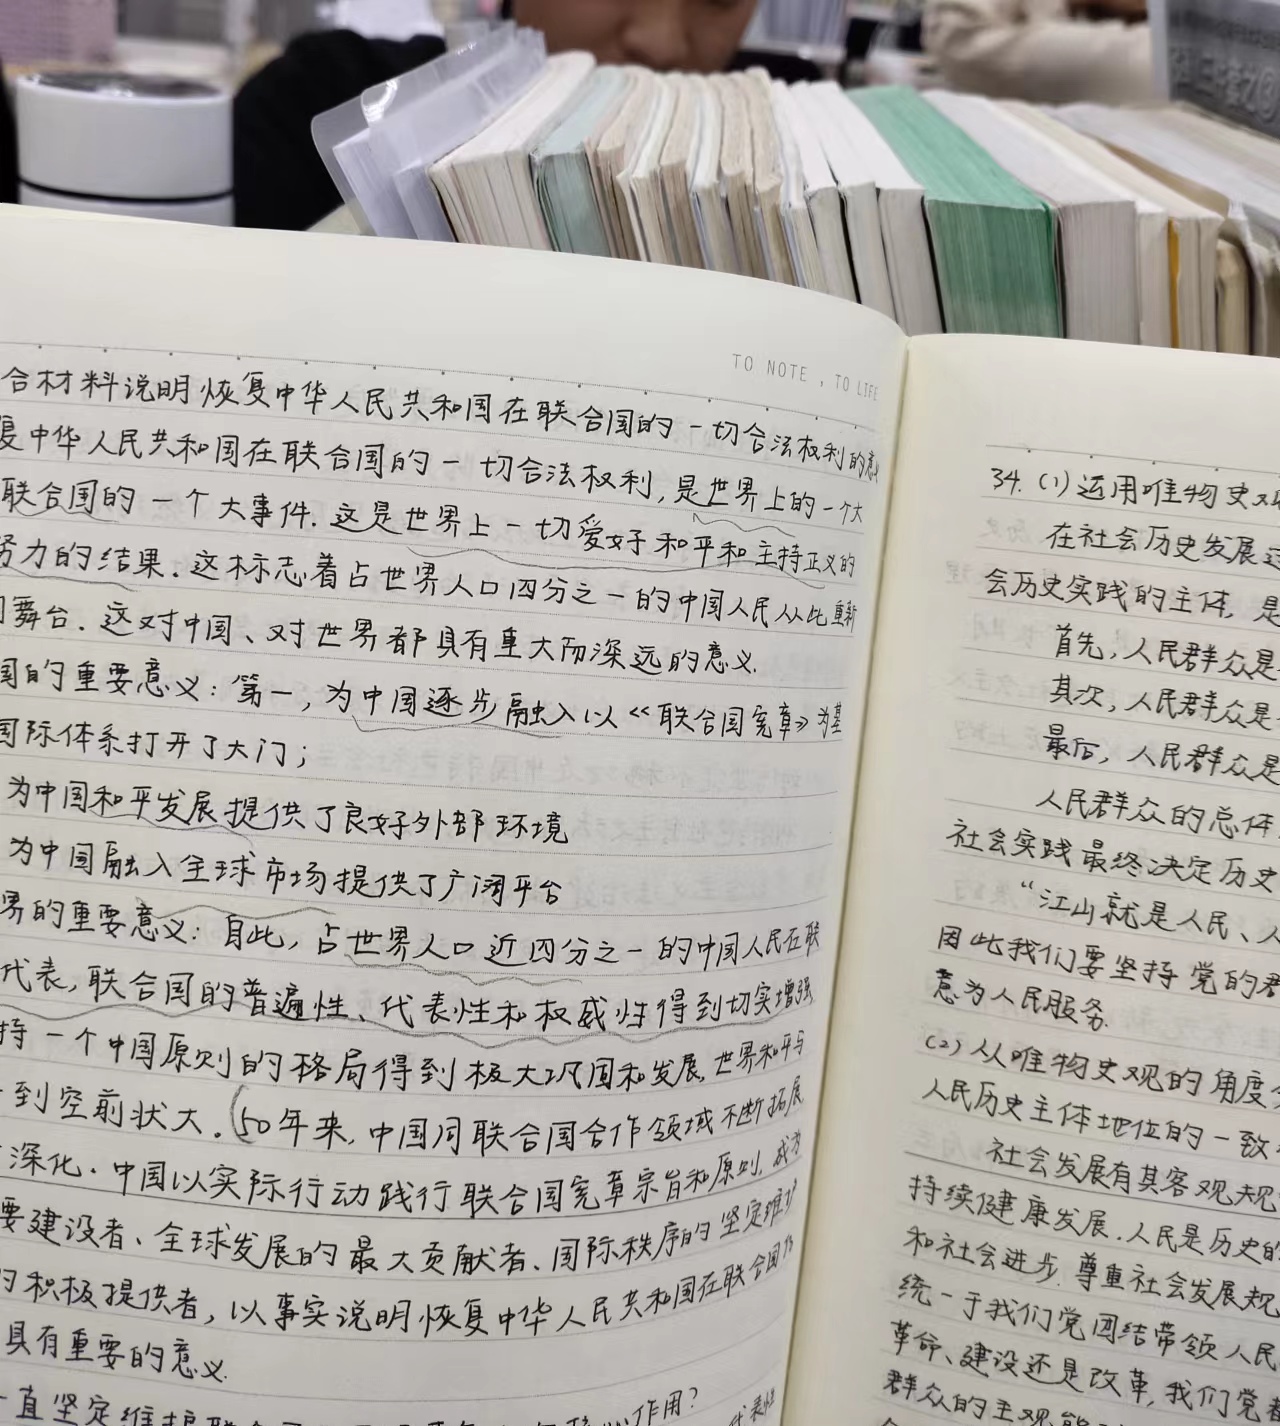 TO NOTE , TO LIFE
合材料说明恢复中华人民共和国在联合国的一切合法权利的意
复中华人民共和国在联合国的一切合法权利,是世界上的一个大
联合国的一个大事件.这是世界上一切爱好和平和主持正义的
努力的结果.这标志着占世界人口四分之一的中国人民从此重新
舞台.这对中国、对世界都具有重大而深远的意义.
国的重要意义:第一,为中国逐步融入以《联合国宪章》为基
国际体系打开了大门;
为中国和平发展提供了良好外部环境
为中国融入全球市场提供了广阔平台
界的重要意义:自此,占世界人口近四分之一的中国人民在联
代表,联合国的普遍性、代表性和权威性得到切实增强
持一个中国原则的格局得到极大巩固和发展,世界和平与
到空前壮大.(50年来,中国同联合国合作领域不断拓展
深化.中国以实际行动践行联合国宪章宗旨和原则,成为
要建设者、全球发展的最大贡献者、国际秩序的坚定维护
的积极提供者,以事实说明恢复中华人民共和国在联合国
具有重要的意义.
一直坚定维护联合
作用?
代表性
34.(1)运用唯物史观
在社会历史发展这
会历史实践的主体,是
首先,人民群众是
其次,人民群众是
最后,人民群众是
人民群众的总体
社会实践最终决定历史
“江山就是人民、人
因此我们要坚持党的群
意为人民服务.
(2)从唯物史观的角度分
人民历史主体地位的一致
社会发展有其客观规
持续健康发展.人民是历史的
和社会进步.尊重社会发展规
统一于我们党团结带领人民
革命、建设还是改革,我们党
群众的主观能